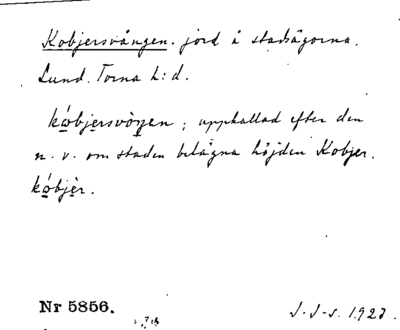 Kobjersvången. jord å stadsägorna.
Lund. Torna h:d.
kóbjersvòŋen; uppkallad efter den
n. v. om staden belägna höjden Kobjer.
kóbjèr.
Nr 5856.
J. J-s. 1927.